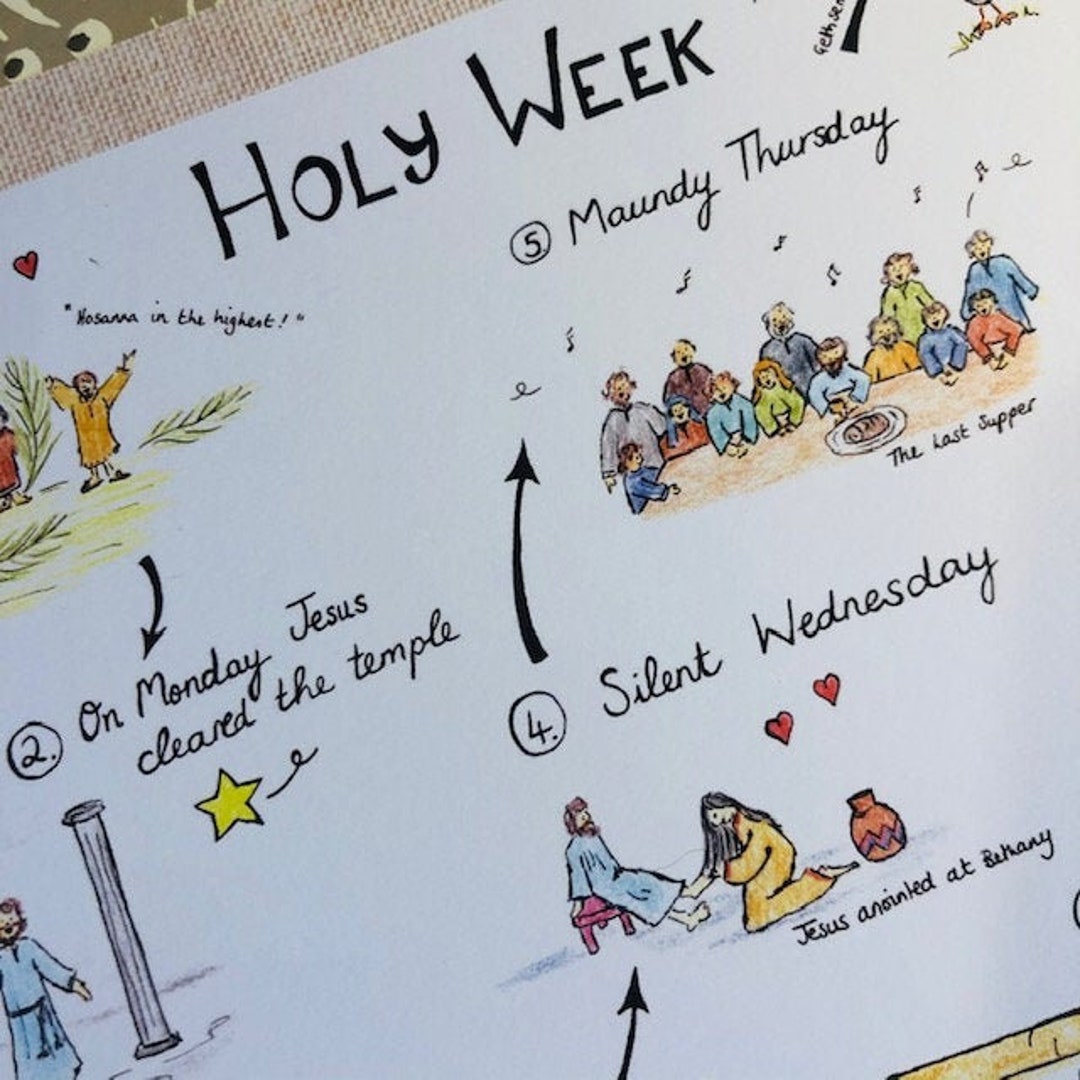 HOLY WEEK
"Hosanna in the highest!"
2. On Monday Jesus
cleared the temple
4. Silent Wednesday
Jesus anointed at Bethany
5. Maundy Thursday
The Last Supper